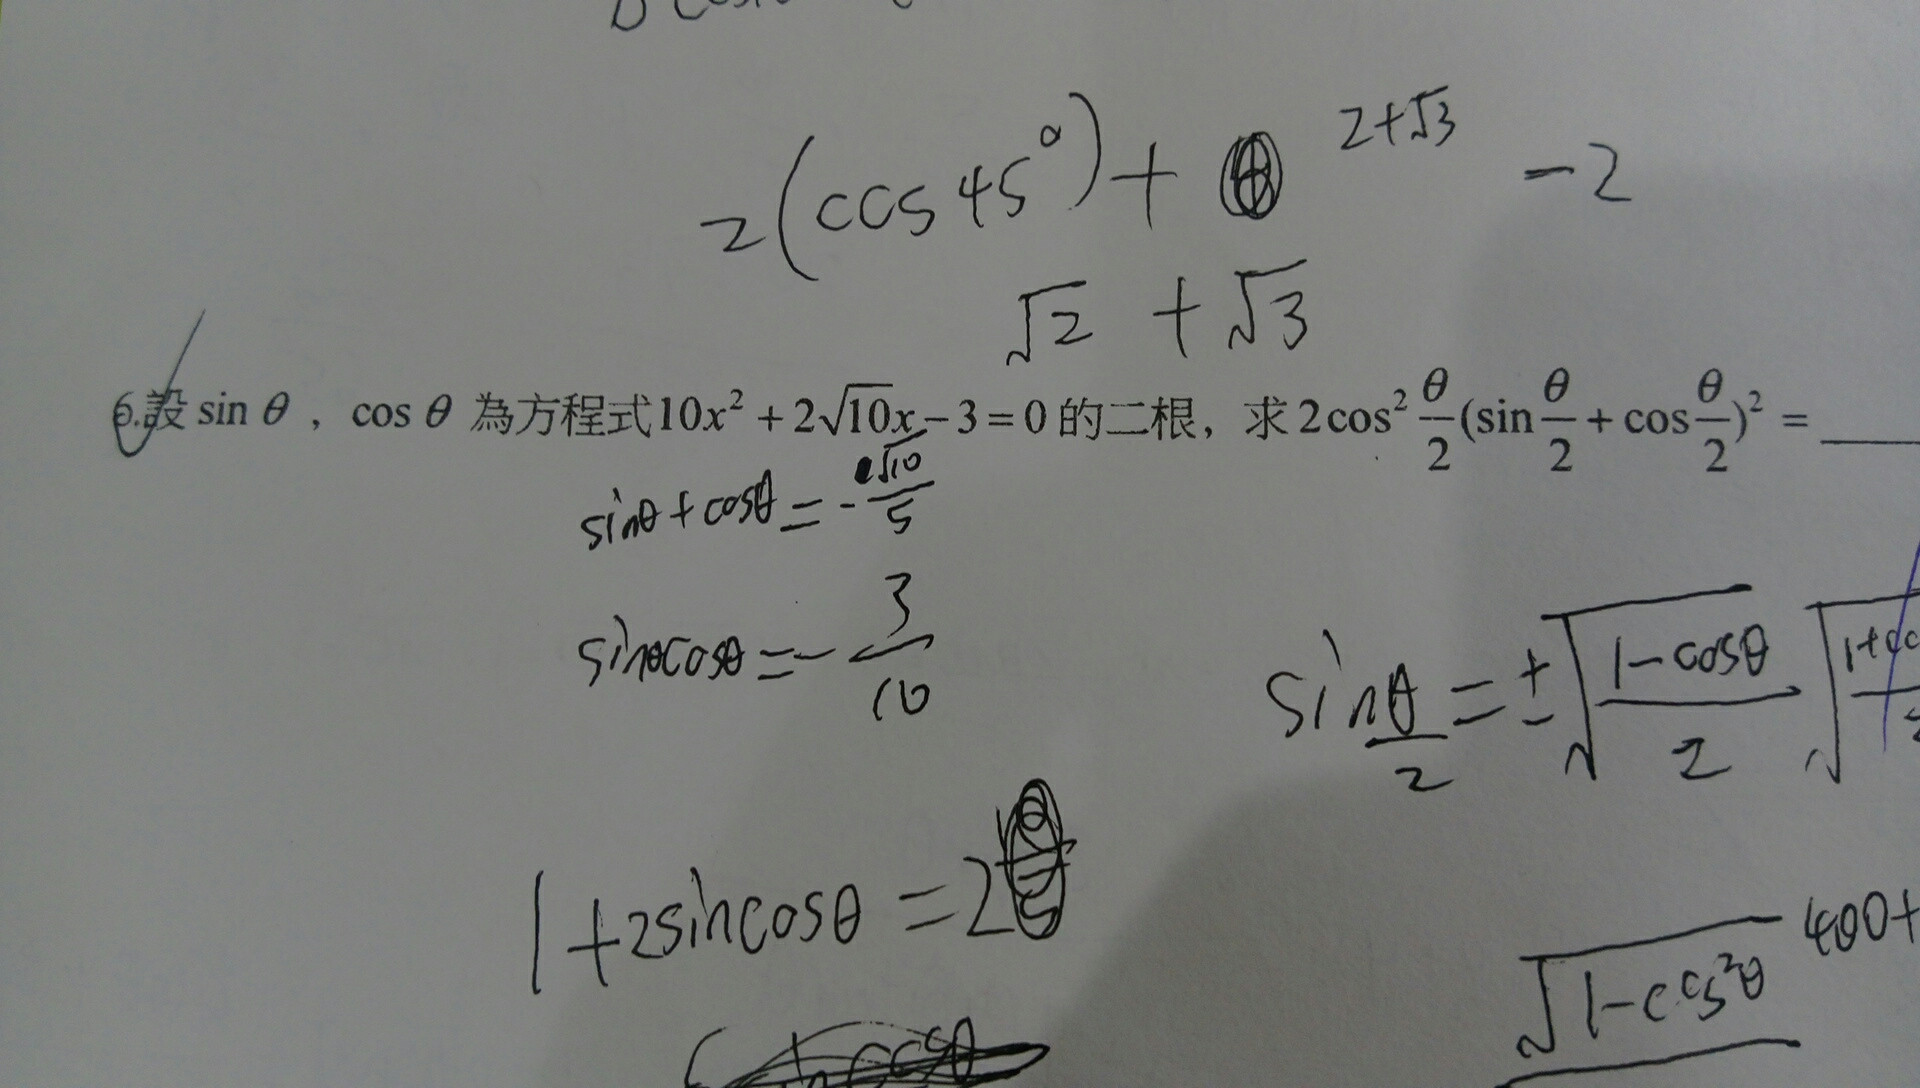 2(cos45°)+ 2+√3 -2
√2 +√3
6.設 sin θ , cos θ 為方程式10x² + 2√10x - 3 = 0 的二根, 求 2cos² θ/2 (sin θ/2 + cos θ/2)² = ____
sinθ+cosθ = -√10/5
sinθcosθ = -3/10
sin θ/2 = ±√(1-cosθ)/2
1+2sincosθ = 2
√1-cos²θ
400+